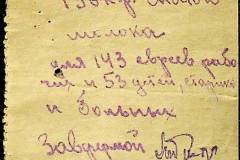 молока
для 143 евреев рабо
чих и 53 детей, стариков
и больных
Завфермой